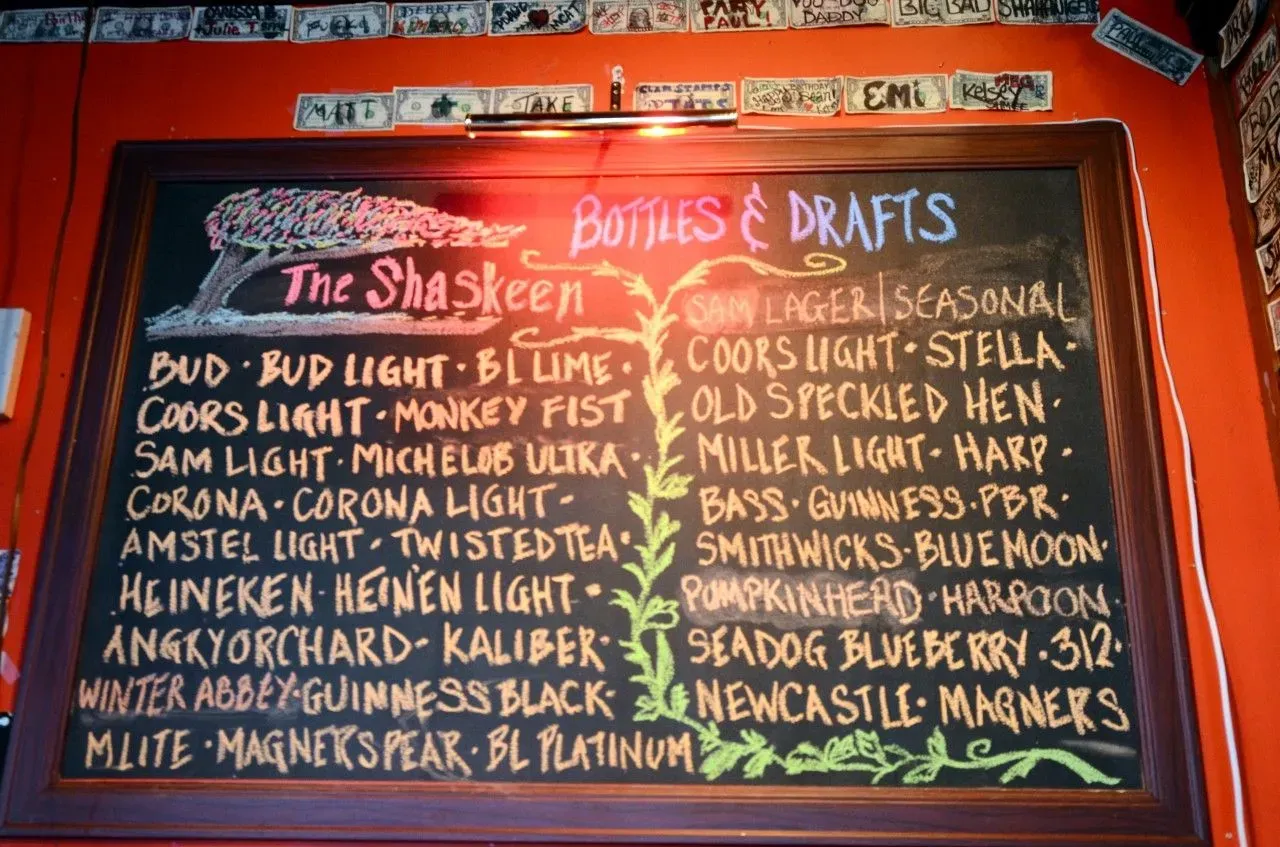 DEBBIE
PARTY
PAUL!
VOO DOO
DADDY
BIG BAD
MATT
TAKE
EMi
MEG
Kelsey
BOTTLES & DRAFTS
The Shaskeen
BUD · BUD LIGHT · BL LIME ·
COORS LIGHT · MONKEY FIST
SAM LIGHT · MICHELOB ULTRA ·
CORONA · CORONA LIGHT ·
AMSTEL LIGHT · TWISTED TEA ·
HEINEKEN · HEIN'EN LIGHT ·
ANGRY ORCHARD · KALIBER ·
WINTER ABBEY · GUINNESS BLACK ·
M LITE · MAGNERS PEAR · BL PLATINUM
SAM LAGER | SEASONAL
COORS LIGHT · STELLA ·
OLD SPECKLED HEN ·
MILLER LIGHT · HARP ·
BASS · GUINNESS · PBR ·
SMITHWICKS · BLUE MOON ·
POMPKINHEAD · HARPOON
SEADOG BLUEBERRY · 312 ·
NEWCASTLE · MAGNERS